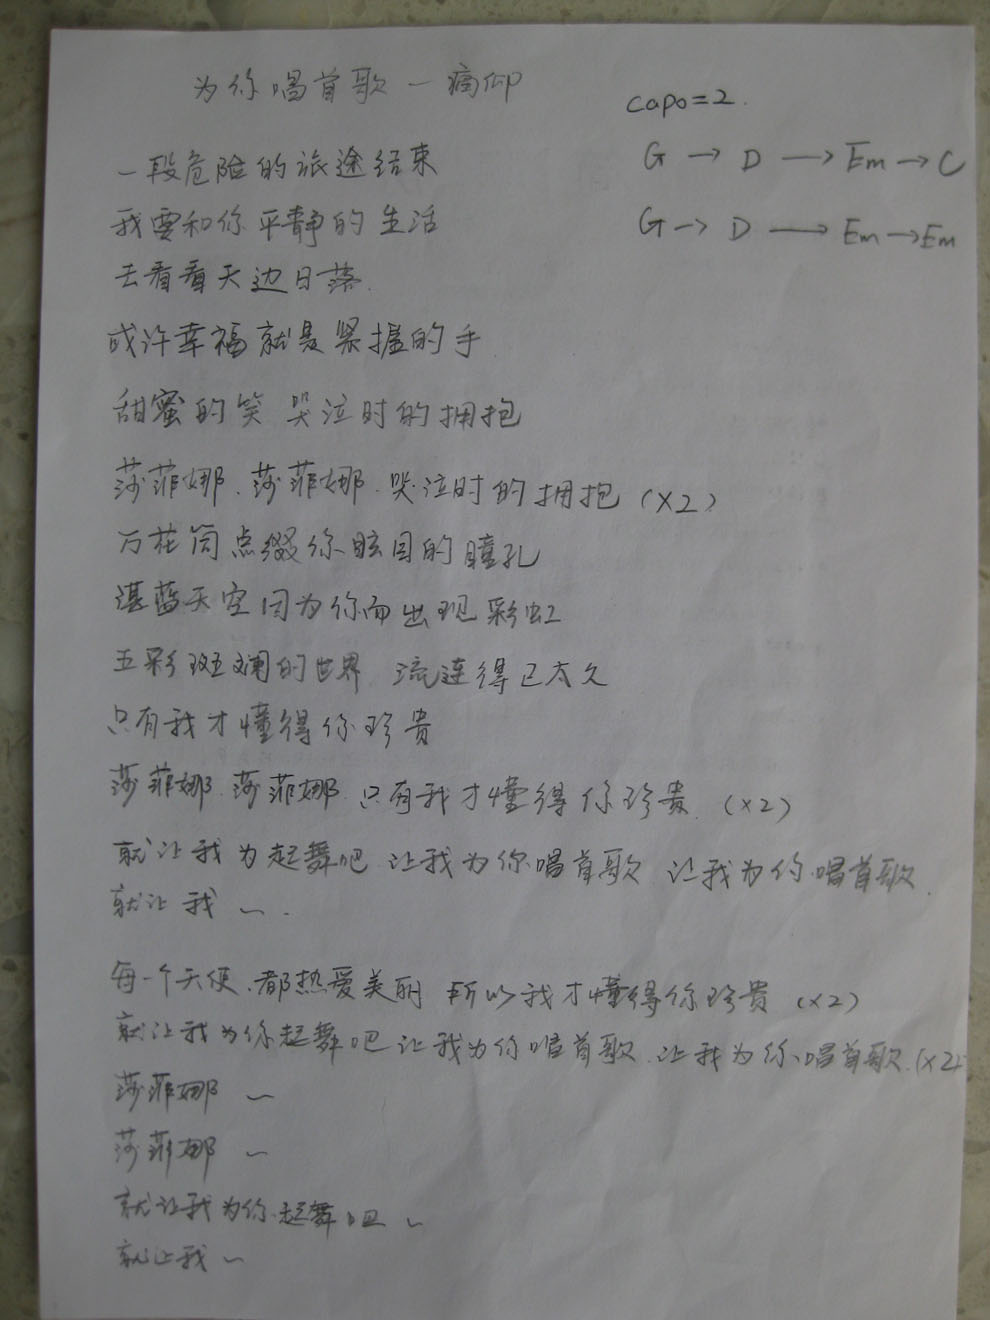 为你唱首歌 — 痛仰
capo=2.
G → D → Em → C
G → D → Em → Em
一段危险的旅途结束
我要和你平静的生活
去看看天边日落.
或许幸福就是紧握的手
甜蜜的笑 哭泣时的拥抱
莎菲娜.莎菲娜.哭泣时的拥抱 (×2)
万花筒点缀你眩目的瞳孔
湛蓝天空因为你而出现彩虹
五彩斑斓的世界 流连得已太久
只有我才懂得你珍贵
莎菲娜.莎菲娜.只有我才懂得你珍贵. (×2)
就让我为起舞吧 让我为你唱首歌 让我为你唱首歌.
就让我 ~.
每一个天使.都热爱美丽 所以我才懂得你珍贵 (×2)
就让我为你起舞吧 让我为你唱首歌.让我为你唱首歌.(×2)
莎菲娜 ~
莎菲娜 ~
就让我为你起舞吧 ~
就让我 ~